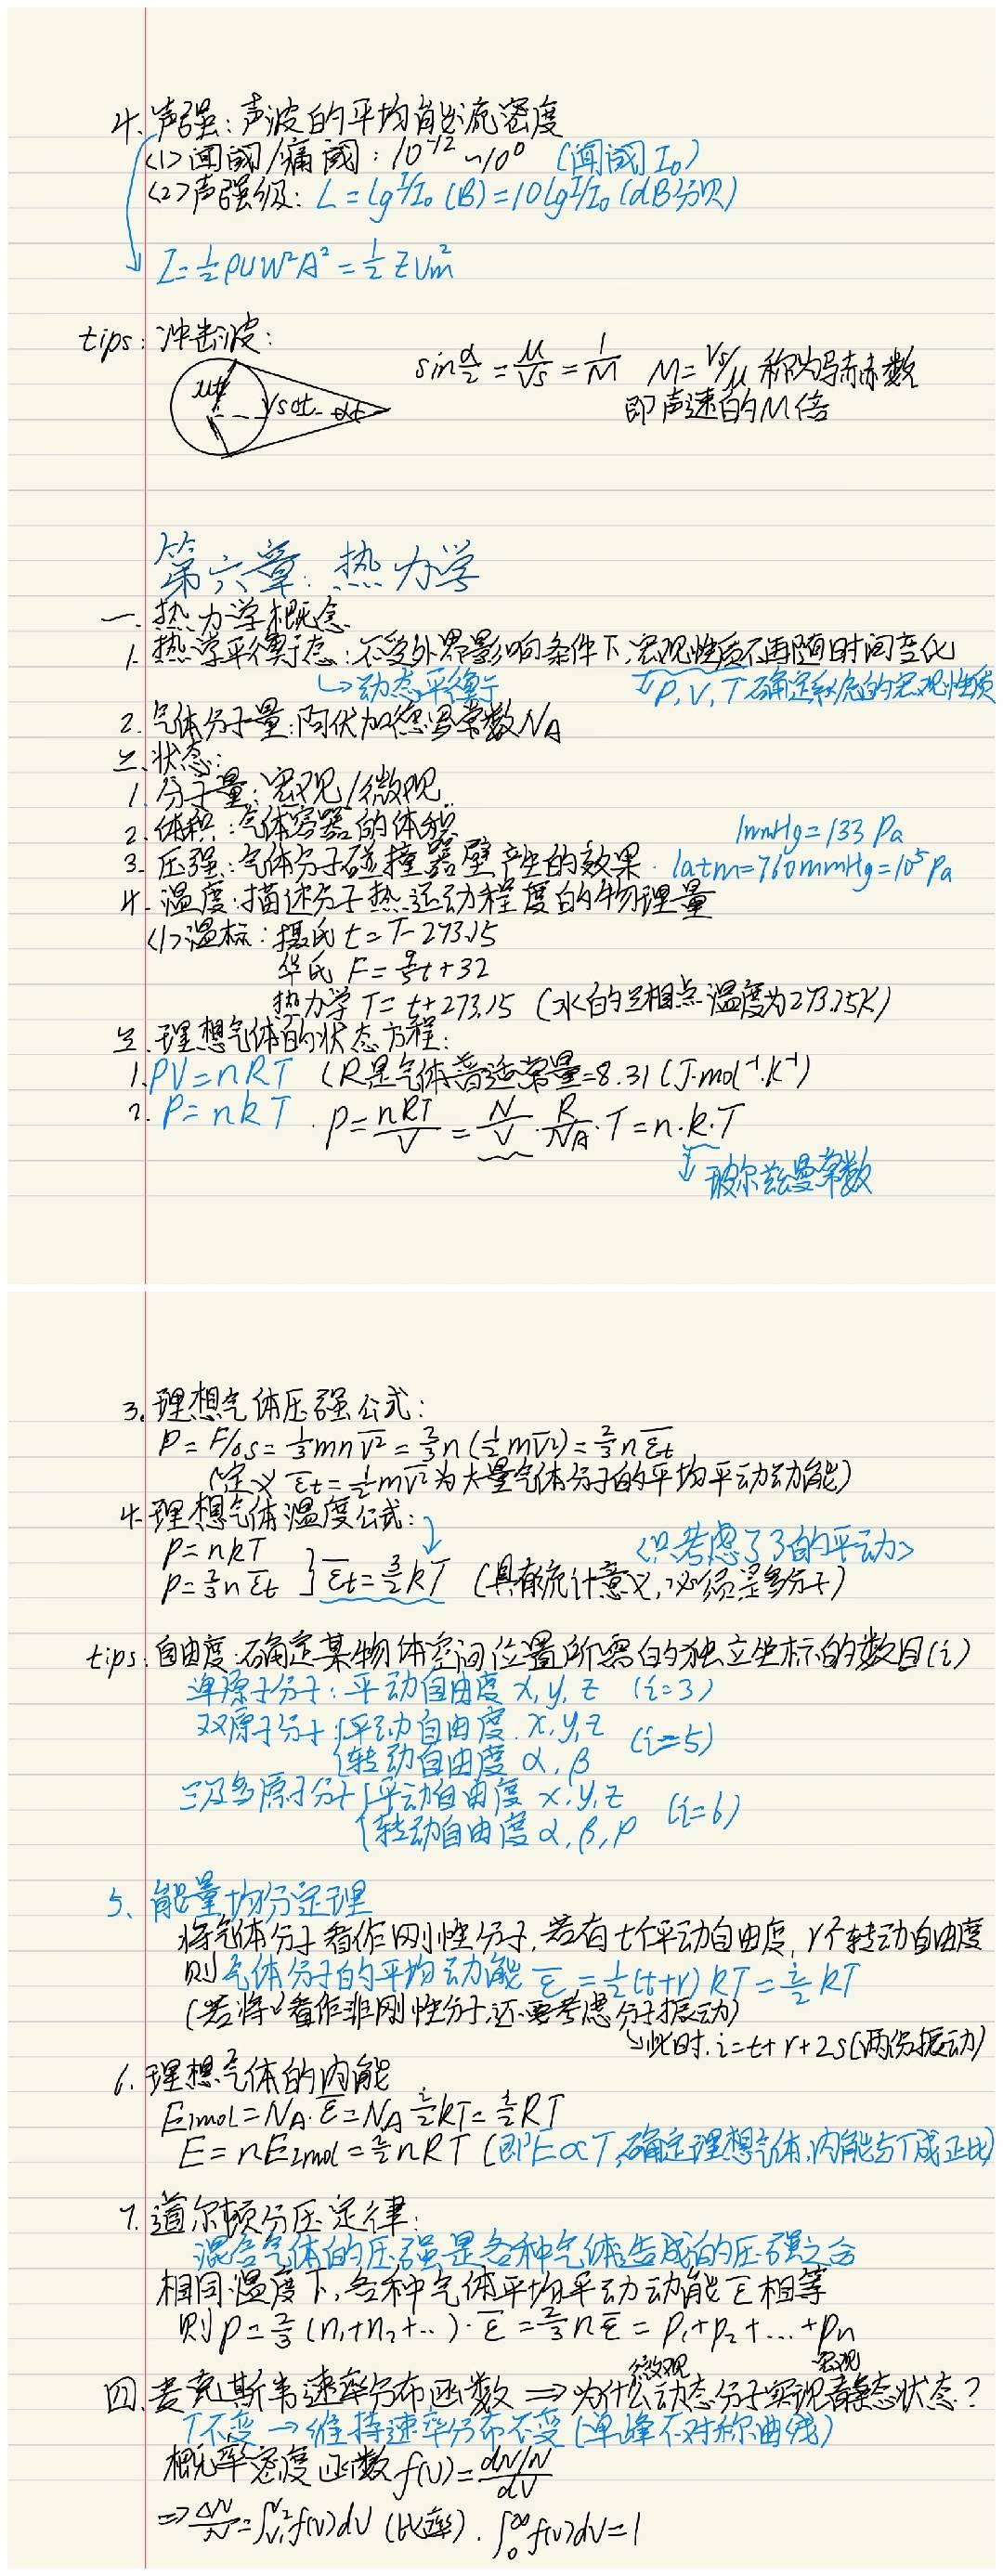 4. 声强:声波的平均能流密度
<1>闻阈/痛阈:10⁻¹²~10⁰ (闻阈I₀)
<2>声强级:L=lgI/I₀(B)=10lgI/I₀(dB分贝)
I=½ρuω²A²=½ZVm²
tips:冲击波:
ut Vsat
sinα/2=u/Vs=1/M M=Vs/u 称为马赫数
即声速的M倍
第六章.热力学
一.热力学概念
1.热学平衡态:不受外界影响条件下,宏观性质不再随时间变化
↳动态平衡 P,V,T确定系统的宏观性质
2.气体分子量:阿伏加德罗常数NA
二.状态:
1.分子量:宏观/微观
2.体积:气体容器的体积
1mmHg=133Pa
3.压强:气体分子碰撞器壁产生的效果. 1atm=760mmHg=10⁵Pa
4.温度:描述分子热运动程度的物理量
<1>温标:摄氏 t=T-273.15
华氏 F=9/5t+32
热力学 T=t+273.15 (水的三相点温度为273.15K)
三.理想气体的状态方程:
1.PV=nRT (R是气体普适常量=8.31(J·mol⁻¹·K⁻¹)
2.P=nkT . P=nRT/V=N/V·R/NA·T=n·k·T
↓玻尔兹曼常数
3.理想气体压强公式:
P=F/△S=⅓mnv̅²=⅔n(½mv̅²)=⅔nε̅t
(定义 ε̅t=½mv̅²为大量气体分子的平均平动动能)
4.理想气体温度公式:
P=nkT <只考虑了3的平动>
P=⅔nε̅t } ε̅t=3/2kT (具有统计意义,必须是多分子)
tips.自由度:确定某物体空间位置所需的独立坐标的数目(i)
单原子分子:平动自由度 x,y,z (i=3)
双原子分子{平动自由度.x,y,z (i=5)
{转动自由度 α,β
三及多原子分子{平动自由度 x,y,z (i=6)
{转动自由度 α,β,ρ
5、能量均分定理
将气体分子看作刚性分子,若有t个平动自由度,r个转动自由度
则气体分子的平均动能 ε̅=½(t+r)kT=i/2kT
(若将其看作非刚性分子,还要考虑分子振动)
↘此时.i=t+r+2s(两份振动)
6.理想气体的内能
E1mol=NA·ε̅=NA i/2kT=i/2RT
E=nE1mol=i/2nRT (即E∝T,确定理想气体,内能与T成正比)
7.道尔顿分压定律:
混合气体的压强是各种气体造成的压强之合
相同温度下,各种气体平均平动动能ε̅相等
则P=⅔(n₁+n₂+…)·ε̅=⅔nε̅=P₁+P₂+…+Pn
微观 宏观
四.麦克斯韦速率分布函数⇒为什么动态分子实现静态状态?
T不变→维持速率分布不变(单峰不对称曲线)
概率密度函数f(v)=dN/N/dv
⇒△N/N=∫v₁^v₂f(v)dv (比率).∫₀^∞f(v)dv=1